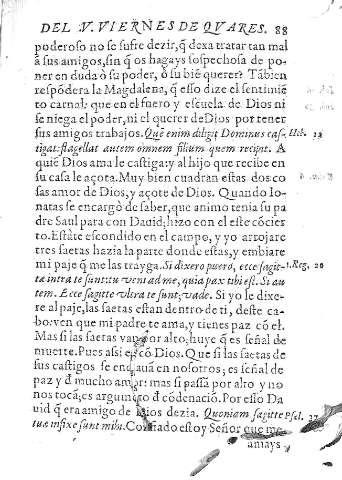 DEL V. VIERNES DE QVARES. 88
poderoso no se sufre dezir, q̃ dexa tratar tan mal
à sus amigos, sin q̃ os hagays sospechosa de po-
ner en duda ò su poder, ò su biẽ querer? Tãbien
respõdera la Magdalena, q̃ esso dize el sentimiẽ
to carnal: que en el fuero y escuela de Dios ni
se niega el poder, ni el querer de Dios por tener
sus amigos trabajos. Quẽ enim diligit Dominus cas Heb. 12
tigat: flagellat autem omnem filium quem recipit. A
quiẽ Dios ama le castiga: y al hijo que recibe en
su casa le açota. Muy bien cuadran estas dos co
sas amor de Dios, y açote de Dios. Quando Io-
natas se encargò de saber, que animo tenia su pa
dre Saul para con Dauid; hizo con el este cõcier
to. Estàte escondido en el campo, y yo arrojare
tres saetas hazia la parte donde estas, y embiare
mi paje q̃ me las trayga. Si dixero puero, ecce sagit- 1. Reg. 20
tæ intra te sunt: tu veni ad me, quia pax tibi est. Si au
tem. Ecce sagittæ vltra te sunt: vade. Si yo le dixe-
re al paje, las saetas estan dentro de ti, deste ca-
bo: ven que mi padre te ama, y tienes paz cõ el.
Mas si las saetas van por alto: huye q̃ es señal de
muerte. Pues assi es cõ Dios. Que si las saetas de
sus castigos se enclauã en nosotros; es señal de
paz y ḋ mucho amor: mas si passã por alto y no
nos tocã; es argumẽto ḋ cõdenaciõ. Por esso Da
uid q̃ era amigo de Dios dezia. Quoniam sagittæ Psal. 37
tuæ infixæ sunt mihi. Confiado estoy Señor que me
amays